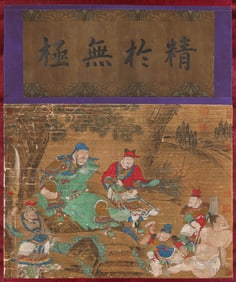 精於無極